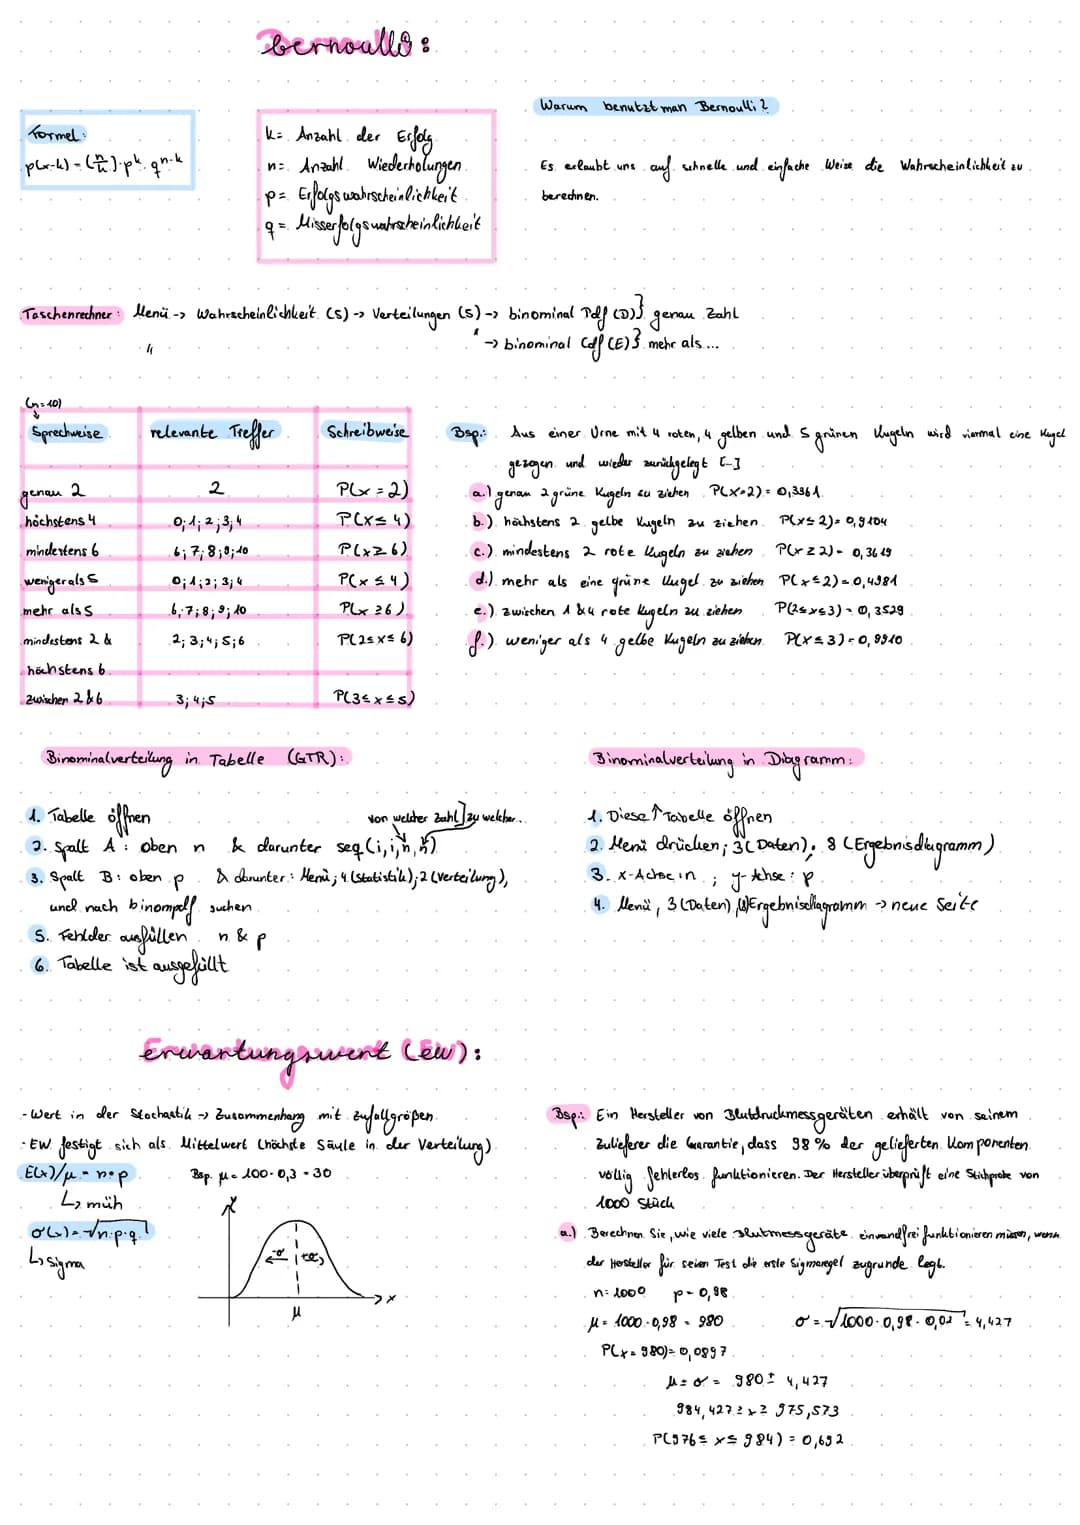 bernoulli:
Formel:
p(x=k) = (n/k)·p^k·q^n-k
k= Anzahl der Erfolg
n= Anzahl Wiederholungen
p= Erfolgswahrscheinlichkeit
q= Misserfolgswahrscheinlichkeit
Warum benutzt man Bernoulli?
Es erlaubt uns auf schnelle und einfache Weise die Wahrscheinlichkeit zu
berechnen.
Taschenrechner: Menü -> Wahrscheinlichkeit (5) -> Verteilungen (5) -> binominal Pdf (D)} genau Zahl
" -> binominal Cdf (E)} mehr als...
(n=10)
Sprechweise relevante Treffer Schreibweise
genau 2 2 P(x=2)
höchstens 4 0;1;2;3;4 P(x≤4)
mindestens 6 6;7;8;9;10 P(x≥6)
weniger als 5 0;1;2;3;4 P(x≤4)
mehr als 5 6;7;8;9;10 P(x≥6)
mindestens 2 & 2;3;4;5;6 P(2≤x≤6)
höchstens 6
zwischen 2&6 3;4;5 P(3≤x≤5)
Bsp.: Aus einer Urne mit 4 roten, 4 gelben und 5 grünen Kugeln wird viermal eine Kugel
gezogen und wieder zurückgelegt [...]
a.) genau 2 grüne Kugeln zu ziehen P(X=2) = 0,3361
b.) höchstens 2 gelbe Kugeln zu ziehen P(x≤2) = 0,9104
c.) mindestens 2 rote Kugeln zu ziehen P(x≥2) = 0,3619
d.) mehr als eine grüne Kugel zu ziehen P(x≤2) = 0,4981
e.) zwischen 1 & 4 rote Kugeln zu ziehen P(2≤x≤3) = 0,3529
f.) weniger als 4 gelbe Kugeln zu ziehen P(x≤3) = 0,9910
Binominalverteilung in Tabelle (GTR):
1. Tabelle öffnen von welcher Zahl] zu welcher..
2. Spalt A: oben n & darunter seq(i,i,n,n)
3. Spalt B: oben p & darunter: Menü; 4(Statistik); 2 (Verteilung),
und nach binompdf suchen
5. Fehlder ausfüllen n & p
6. Tabelle ist ausgefüllt
Binominalverteilung in Diagramm:
1. Diese ↑ Tabelle öffnen
2. Menü drücken; 3 (Daten), 8 (Ergebnisdiagramm)
3. x-Achse: n ; y-Achse: p
4. Menü, 3 (Daten), Ergebnisdiagramm -> neue Seite
Erwartungswert (EW):
- Wert in der Stochastik -> Zusammenhang mit zufallgrößen
- EW festigt sich als Mittelwert (höchste Säule in der Verteilung)
E(x)/μ = n·p Bsp. μ = 100·0,3 = 30
↳ müh
σ(x) = √n·p·q
↳ sigma
-σ +σ
x
μ
Bsp.: Ein Hersteller von Blutdruckmessgeräten erhält von seinem
Zulieferer die Garantie, dass 98 % der gelieferten Komponenten
völlig fehlerlos funktionieren. Der Hersteller überprüft eine Stichprobe von
1000 Stück
a.) Berechnen Sie, wie viele Blutmessgeräte einwandfrei funktionieren müssen, wenn
der Hersteller für seinen Test die erste Sigmaregel zugrunde legt.
n=1000 p=0,98
μ = 1000·0,98 = 980 σ = √1000·0,98·0,02 = 4,427
P(x=980) = 0,0897
μ±σ = 980 ± 4,427
984,427 ≥ x ≥ 975,573
P(976≤ x≤ 984) = 0,692